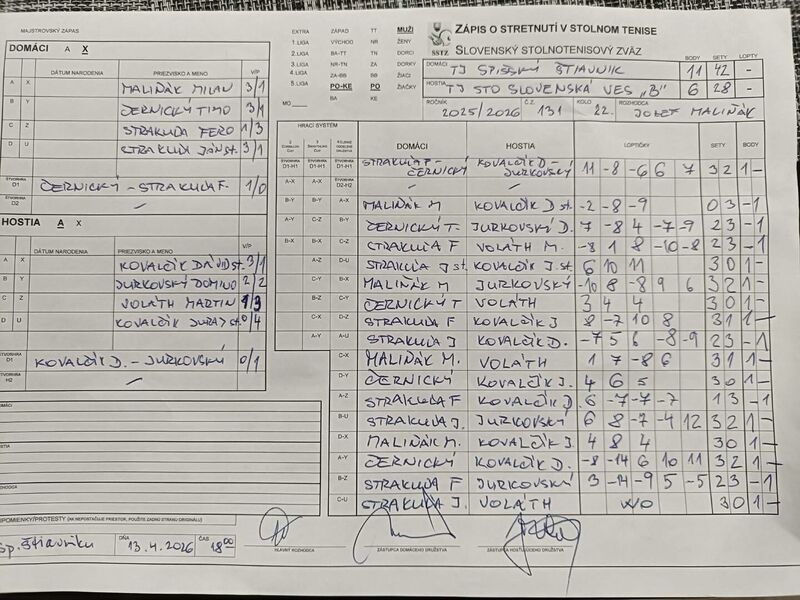 MAJSTROVSKÝ ZÁPAS
DOMÁCI A X
DÁTUM NARODENIA PRIEZVISKO A MENO V/P
A X MALIŇÁK MILAN 3/1
B Y ČERNICKÝ TIMO 3/1
C Z STRAKULA FERO 1/3
D U STRAKULA JÁN st. 3/1
ŠTVORHRA D1 ČERNICKÝ - STRAKULA F. 1/0
ŠTVORHRA D2 —
HOSTIA A X
DÁTUM NARODENIA PRIEZVISKO A MENO V/P
A X KOVALČÍK DÁVID st. 3/1
B Y JURKOVSKÝ DOMINO 2/2
C Z VOLÁTH MARTIN 1/3
D U KOVALČÍK JURAJ st. 0/4
ŠTVORHRA D1 KOVALČÍK D. - JURKOVSKÝ 0/1
ŠTVORHRA H2 —
EXTRA ZÁPAD TT MUŽI
1. LIGA VÝCHOD NR ŽENY
2. LIGA BA-TT TN DORCI
3. LIGA NR-TN ZA DORKY
4. LIGA ZA-BB BB ŽIACI
5. LIGA PO-KE PO ŽIAČKY
MO BA KE
SSTZ
ZÁPIS O STRETNUTÍ V STOLNOM TENISE
SLOVENSKÝ STOLNOTENISOVÝ ZVÄZ
BODY SETY LOPTY
DOMÁCI TJ SPIŠSKÝ ŠTIAVNIK 11 42 -
HOSTIA TJ STO SLOVENSKÁ VES „B" 6 28 -
ROČNÍK 2025/2026 Č.Z. 131 KOLO 22. ROZHODCA JOZEF MALIŇÁK
HRACÍ SYSTÉM DOMÁCI HOSTIA LOPTIČKY SETY BODY
D1-H1 D1-H1 STRAKULA F - ČERNICKÝ KOVALČÍK D - JURKOVSKÝ 11 -8 -6 6 7 3 2 1 -
A-X A-X D2-H2 — —
B-Y B-Y A-X MALIŇÁK M KOVALČÍK D st. -2 -8 -9 0 3 -1
A-Y C-Z B-Y ČERNICKÝ T. JURKOVSKÝ D. 7 -8 4 -7 -9 2 3 -1
B-X B-X C-Z STRAKULA F VOLÁTH M. -8 1 8 -10 -8 2 3 -1
A-Z D-U STRAKULA J st. KOVALČÍK J. st. 6 10 11 3 0 1 -
C-Y B-X MALIŇÁK M JURKOVSKÝ -10 8 -8 9 6 3 2 1 -
B-Z C-Y ČERNICKÝ T VOLÁTH 3 4 4 3 0 1 -
C-X D-Z STRAKULA F KOVALČÍK J 8 -7 10 8 3 1 1 -
A-Y A-U STRAKULA J KOVALČÍK D. -7 5 6 -8 -9 2 3 -1
C-X MALIŇÁK M. VOLÁTH 1 7 -8 6 3 1 1 -
D-Y ČERNICKÝ KOVALČÍK J. 4 6 5 3 0 1 -
A-Z STRAKULA F KOVALČÍK D. 6 -7 -7 -7 1 3 -1
B-U STRAKULA J. JURKOVSKÝ 6 8 -7 -4 12 3 2 1 -
D-X MALIŇÁK M. KOVALČÍK J 4 8 4 3 0 1 -
A-Y ČERNICKÝ KOVALČÍK D. -8 -14 6 10 11 3 2 1 -
B-Z STRAKULA F JURKOVSKÝ 3 -14 -9 5 -5 2 3 -1
C-U STRAKULA J. VOLÁTH w/o 3 0 1 -
PRIPOMIENKY/PROTESTY (AK NEPOSTAČUJE PRIESTOR, POUŽITE ZADNÚ STRANU ORIGINÁLU)
Sp. Štiavniku DŇA 13.4.2026 ČAS 18:00
HLAVNÝ ROZHODCA ZÁSTUPCA DOMÁCEHO DRUŽSTVA ZÁSTUPCA HOSŤUJÚCEHO DRUŽSTVA